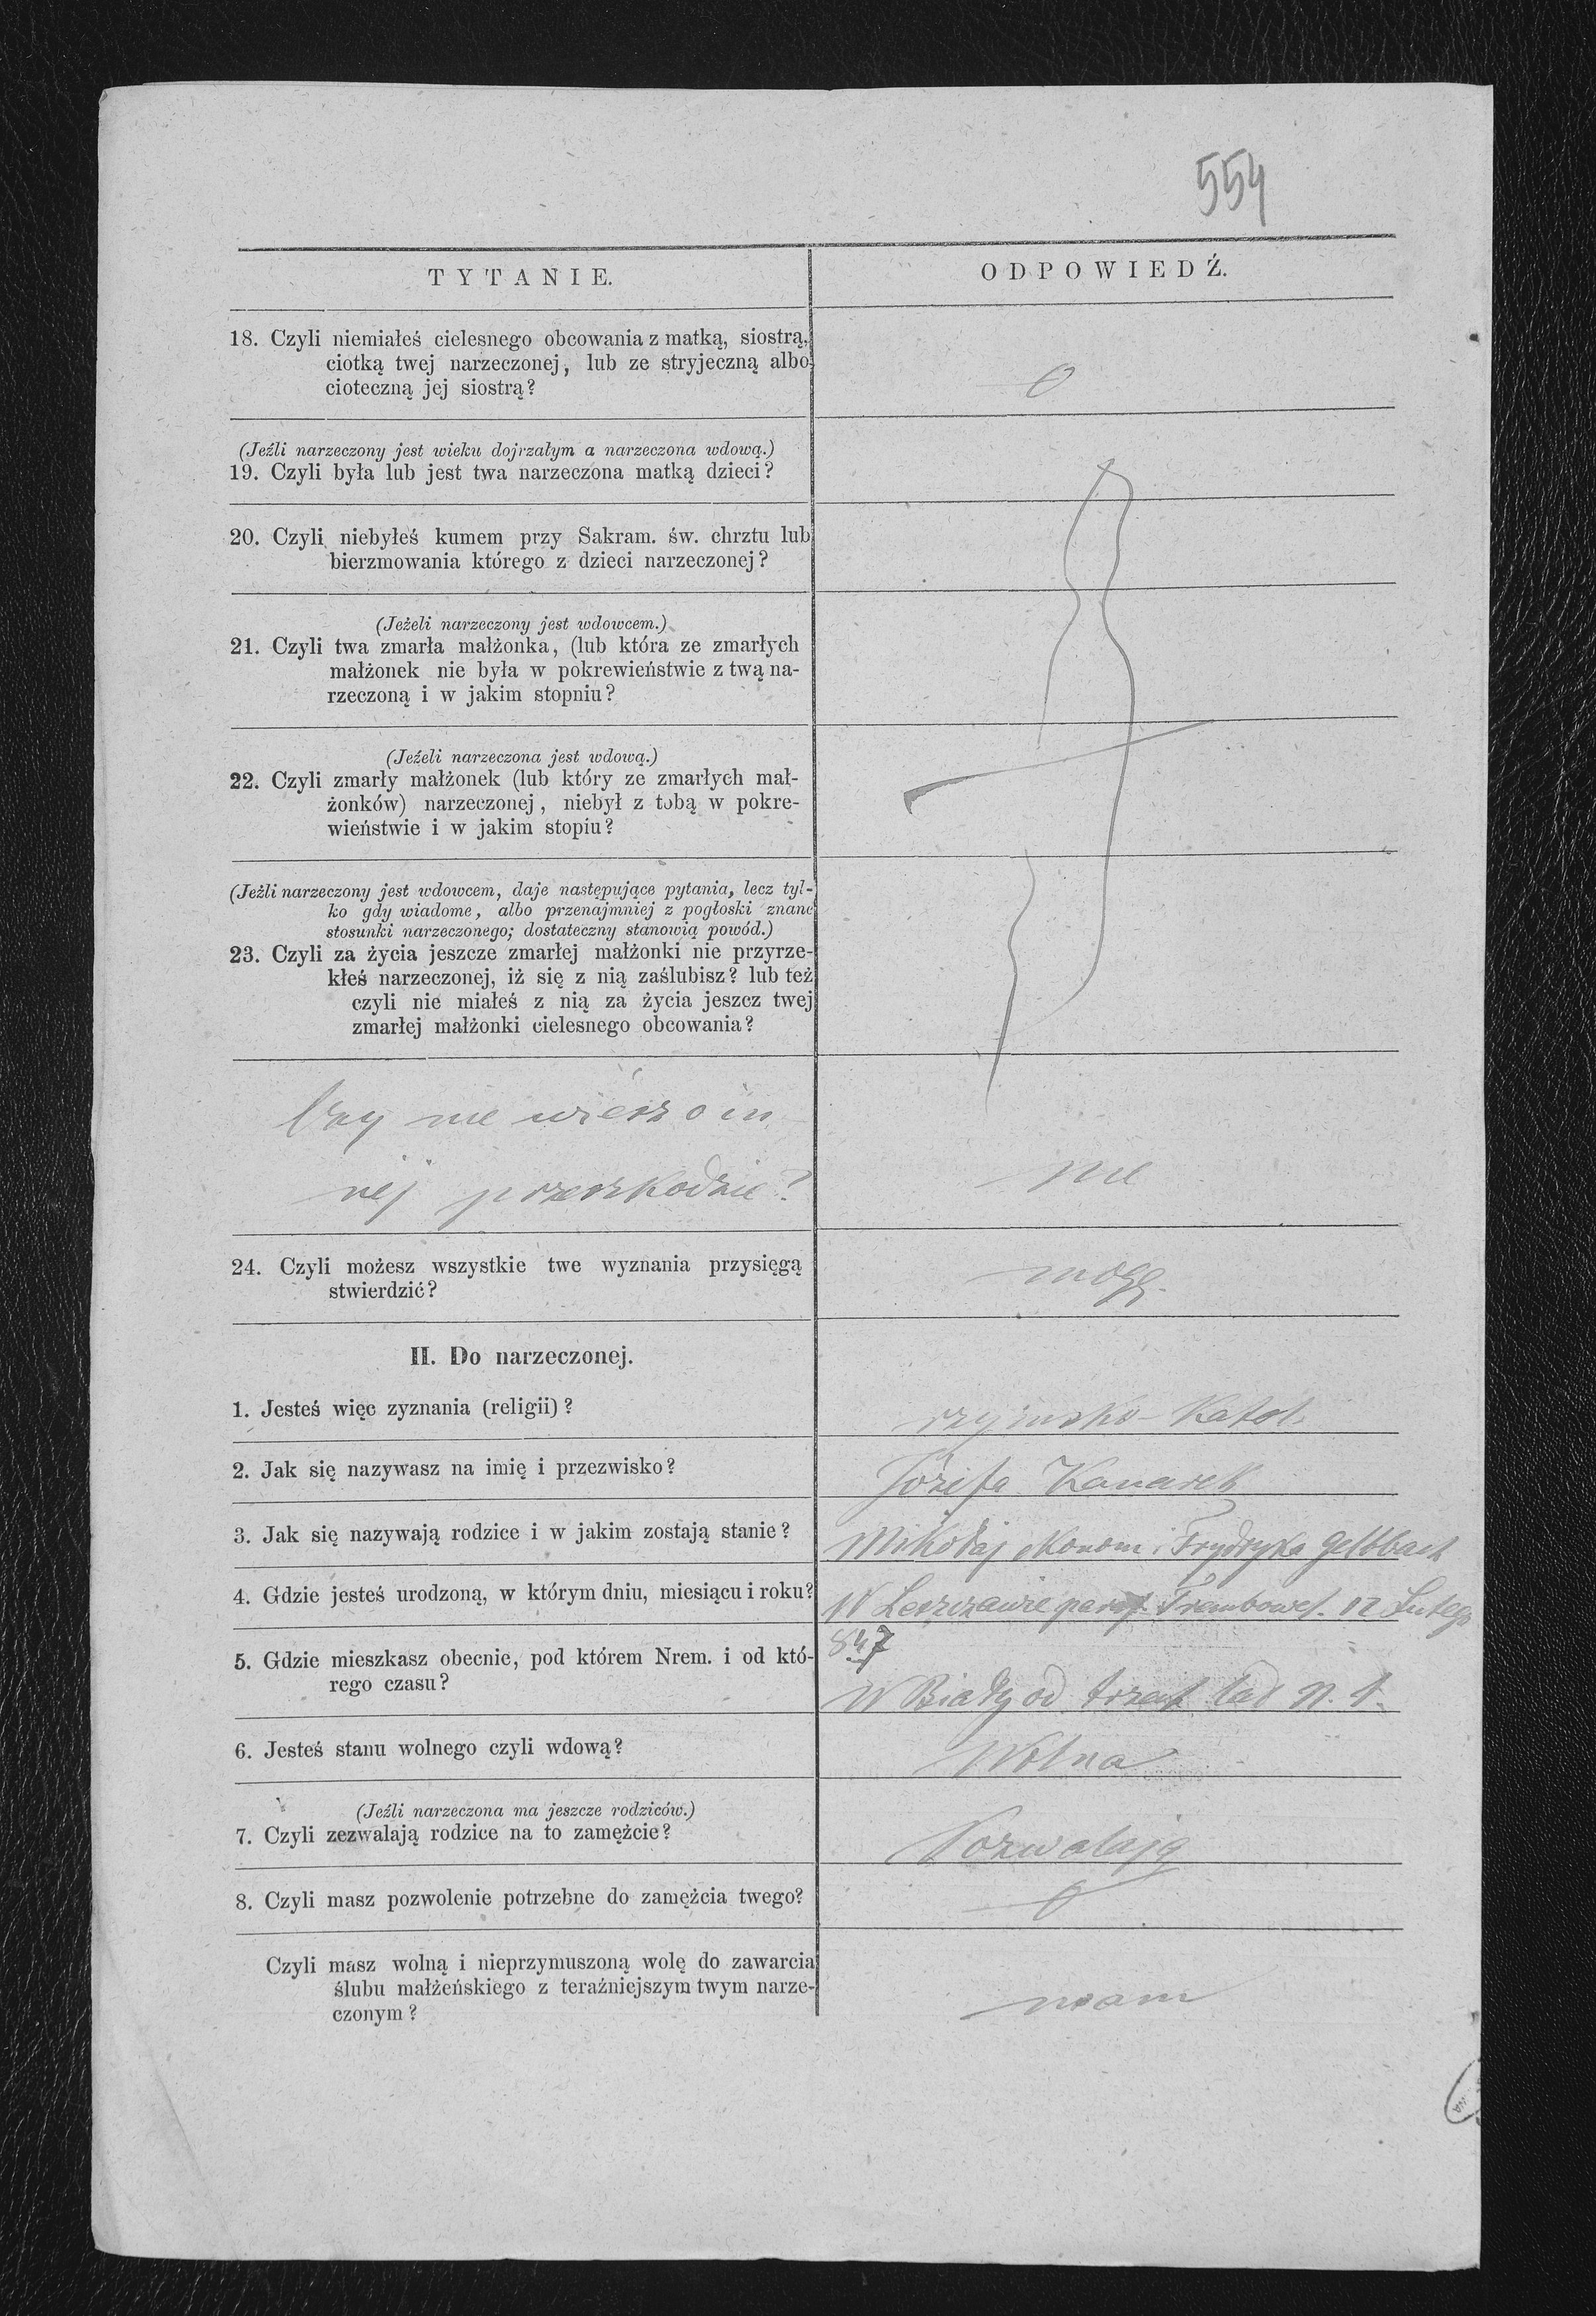 554
TYTANIE.
ODPOWIEDŹ.
18. Czyli niemiałeś cielesnego obcowania z matką, siostrą,
ciotką twej narzeczonej, lub ze stryjeczną albo
cioteczną jej siostrą?
0
(Jeźli narzeczony jest wieku dojrzałym a narzeczona wdową.)
19. Czyli była lub jest twa narzeczona matką dzieci?
20. Czyli niebyłeś kumem przy Sakram. św. chrztu lub
bierzmowania którego z dzieci narzeczonej?
(Jeżeli narzeczony jest wdowcem.)
21. Czyli twa zmarła małżonka, (lub która ze zmarłych
małżonek nie była w pokrewieństwie z twą na-
rzeczoną i w jakim stopniu?
(Jeźeli narzeczona jest wdową.)
22. Czyli zmarły małżonek (lub który ze zmarłych mał-
żonków) narzeczonej, niebył z tobą w pokre-
wieństwie i w jakim stopiu?
(Jeżli narzeczony jest wdowcem, daje następujące pytania, lecz tyl-
ko gdy wiadome, albo przenajmniej z pogłoski znane
stosunki narzeczonego; dostateczny stanowią powód.)
23. Czyli za życia jeszcze zmarłej małżonki nie przyrze-
kłeś narzeczonej, iż się z nią zaślubisz? lub też
czyli nie miałeś z nią za życia jeszcz twej
zmarłej małżonki cielesnego obcowania?
Czy nie wiesz o in
nej przeszkodzie?
nie
24. Czyli możesz wszystkie twe wyznania przysięgą
stwierdzić?
mogę.
II. Do narzeczonej.
1. Jesteś więc zyznania (religii)?
rzymsko-Katol.
2. Jak się nazywasz na imię i przezwisko?
Józefa Kanarek
3. Jak się nazywają rodzice i w jakim zostają stanie?
Mikołaj ekonom i Frydryka Geltbach
4. Gdzie jesteś urodzoną, w którym dniu, miesiącu i roku?
W Leszczawie paraf. Trembowel. 12 Lutego
847
5. Gdzie mieszkasz obecnie, pod którem Nrem. i od któ-
rego czasu?
W Biały od trzech lat N. 1.
6. Jesteś stanu wolnego czyli wdową?
Wolna
(Jeźli narzeczona ma jeszcze rodziców.)
7. Czyli zezwalają rodzice na to zamężcie?
Pozwalają
8. Czyli masz pozwolenie potrzebne do zamężcia twego?
0
Czyli masz wolną i nieprzymuszoną wolę do zawarcia
ślubu małżeńskiego z teraźniejszym twym narze-
czonym?
mam